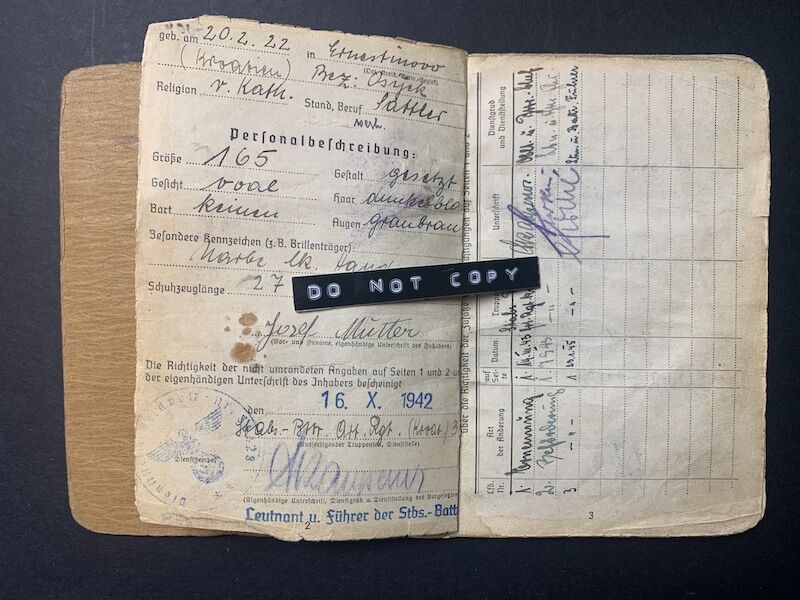 geb. am 20.2.22 in Ernestinovo
(Kroatien) Bez. Osyek
Religion r. Kath. Stand, Beruf Sattler
Personalbeschreibung:
Größe 165 Gestalt gesetzt
Gesicht oval Haar dunkelblo
Bart keinen Augen graubrau
Besondere Kennzeichen (z. B. Brillenträger):
Narbe lk. Hand
Schuhzeuglänge 27
DO NOT COPY
Josef Mutter
(Vor- und Zuname, eigenhändige Unterschrift des Inhabers)
Die Richtigkeit der nicht umrandeten Angaben auf Seiten 1 und 2 u
der eigenhändigen Unterschrift des Inhabers bescheinigt
den 16. X. 1942
Stabs-Bttr. Art. Rgt. (Kroat.) 3
(Ausfertigender Truppenteil, Dienststelle)
Dienststempel
(Eigenhändige Unterschrift, Dienstgrad u. Dienststellung des Vorgesetzten)
Leutnant u. Führer der Stbs.-Batt
2
über die Richtigkeit der zusätz
igungen auf Seiten 1 und 2
Lfd. Nr.
Art der Änderung
auf Seite
Datum
Truppen
Unterschrift
Dienstgrad und Dienststellung
1. Ernennung 1.
2. Beförderung 1.
3 -"- 1
3